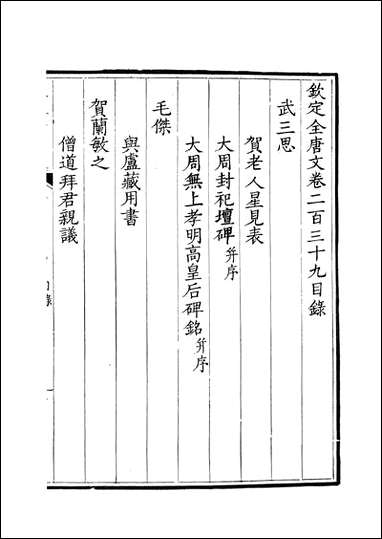 欽定全唐文卷二百三十九目錄
武三思
賀老人星見表
大周封祀壇碑并序
大周無上孝明高皇后碑銘并序
毛傑
與盧藏用書
賀蘭敏之
僧道拜君親議